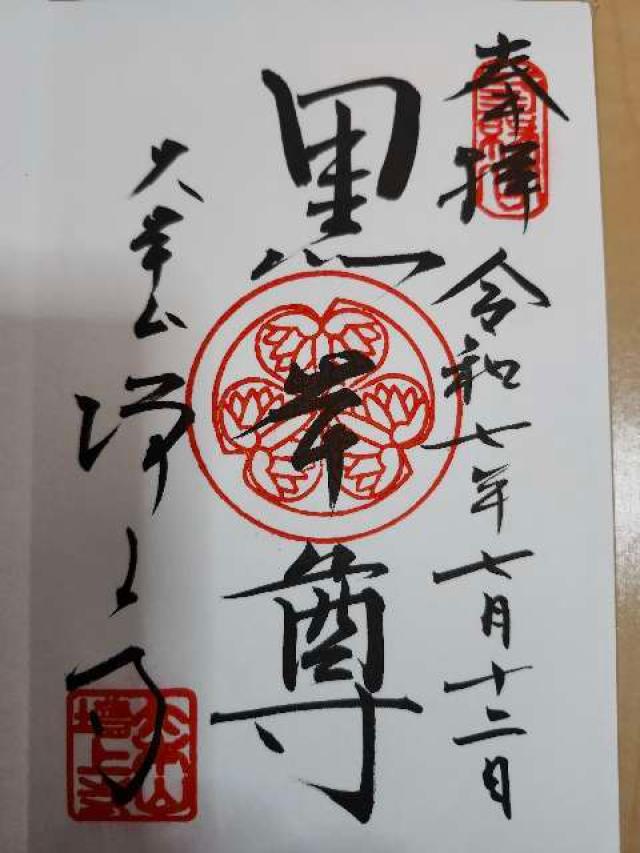 奉拝
令和七年七月十二日
黒本尊
大本山
増上寺